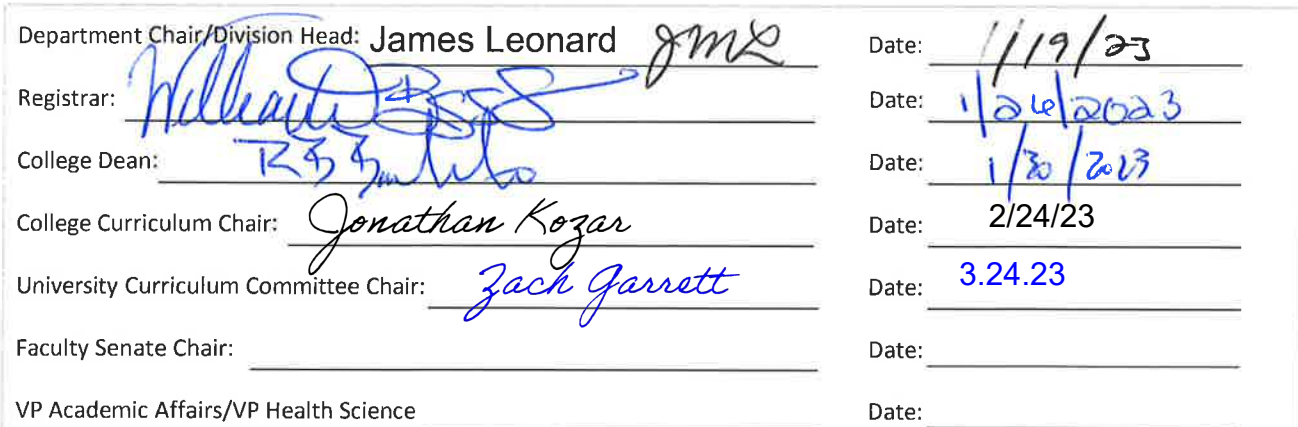 Department Chair/Division Head: James Leonard JML Date: 1/19/23
Registrar: Date: 1/26/2023
College Dean: Date: 1/30/2023
College Curriculum Chair: Jonathan Kozar Date: 2/24/23
University Curriculum Committee Chair: Zach Garrett Date: 3.24.23
Faculty Senate Chair: Date:
VP Academic Affairs/VP Health Science Date: